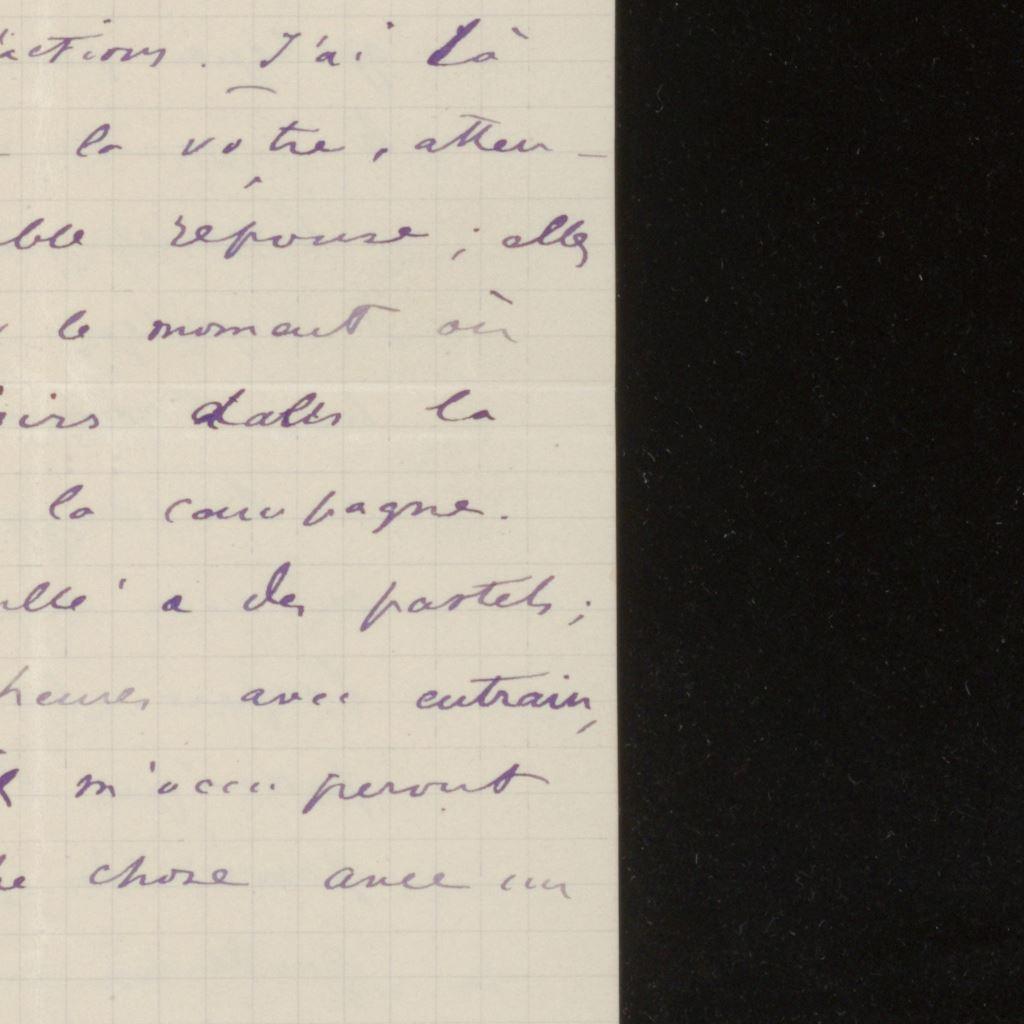 actions. J'ai là
la votre, atten-
ble réponse ; elles
le moment où
dans la
la campagne.
a des pastels ;
heures avec entrain,
m'occuperont
chose avec un